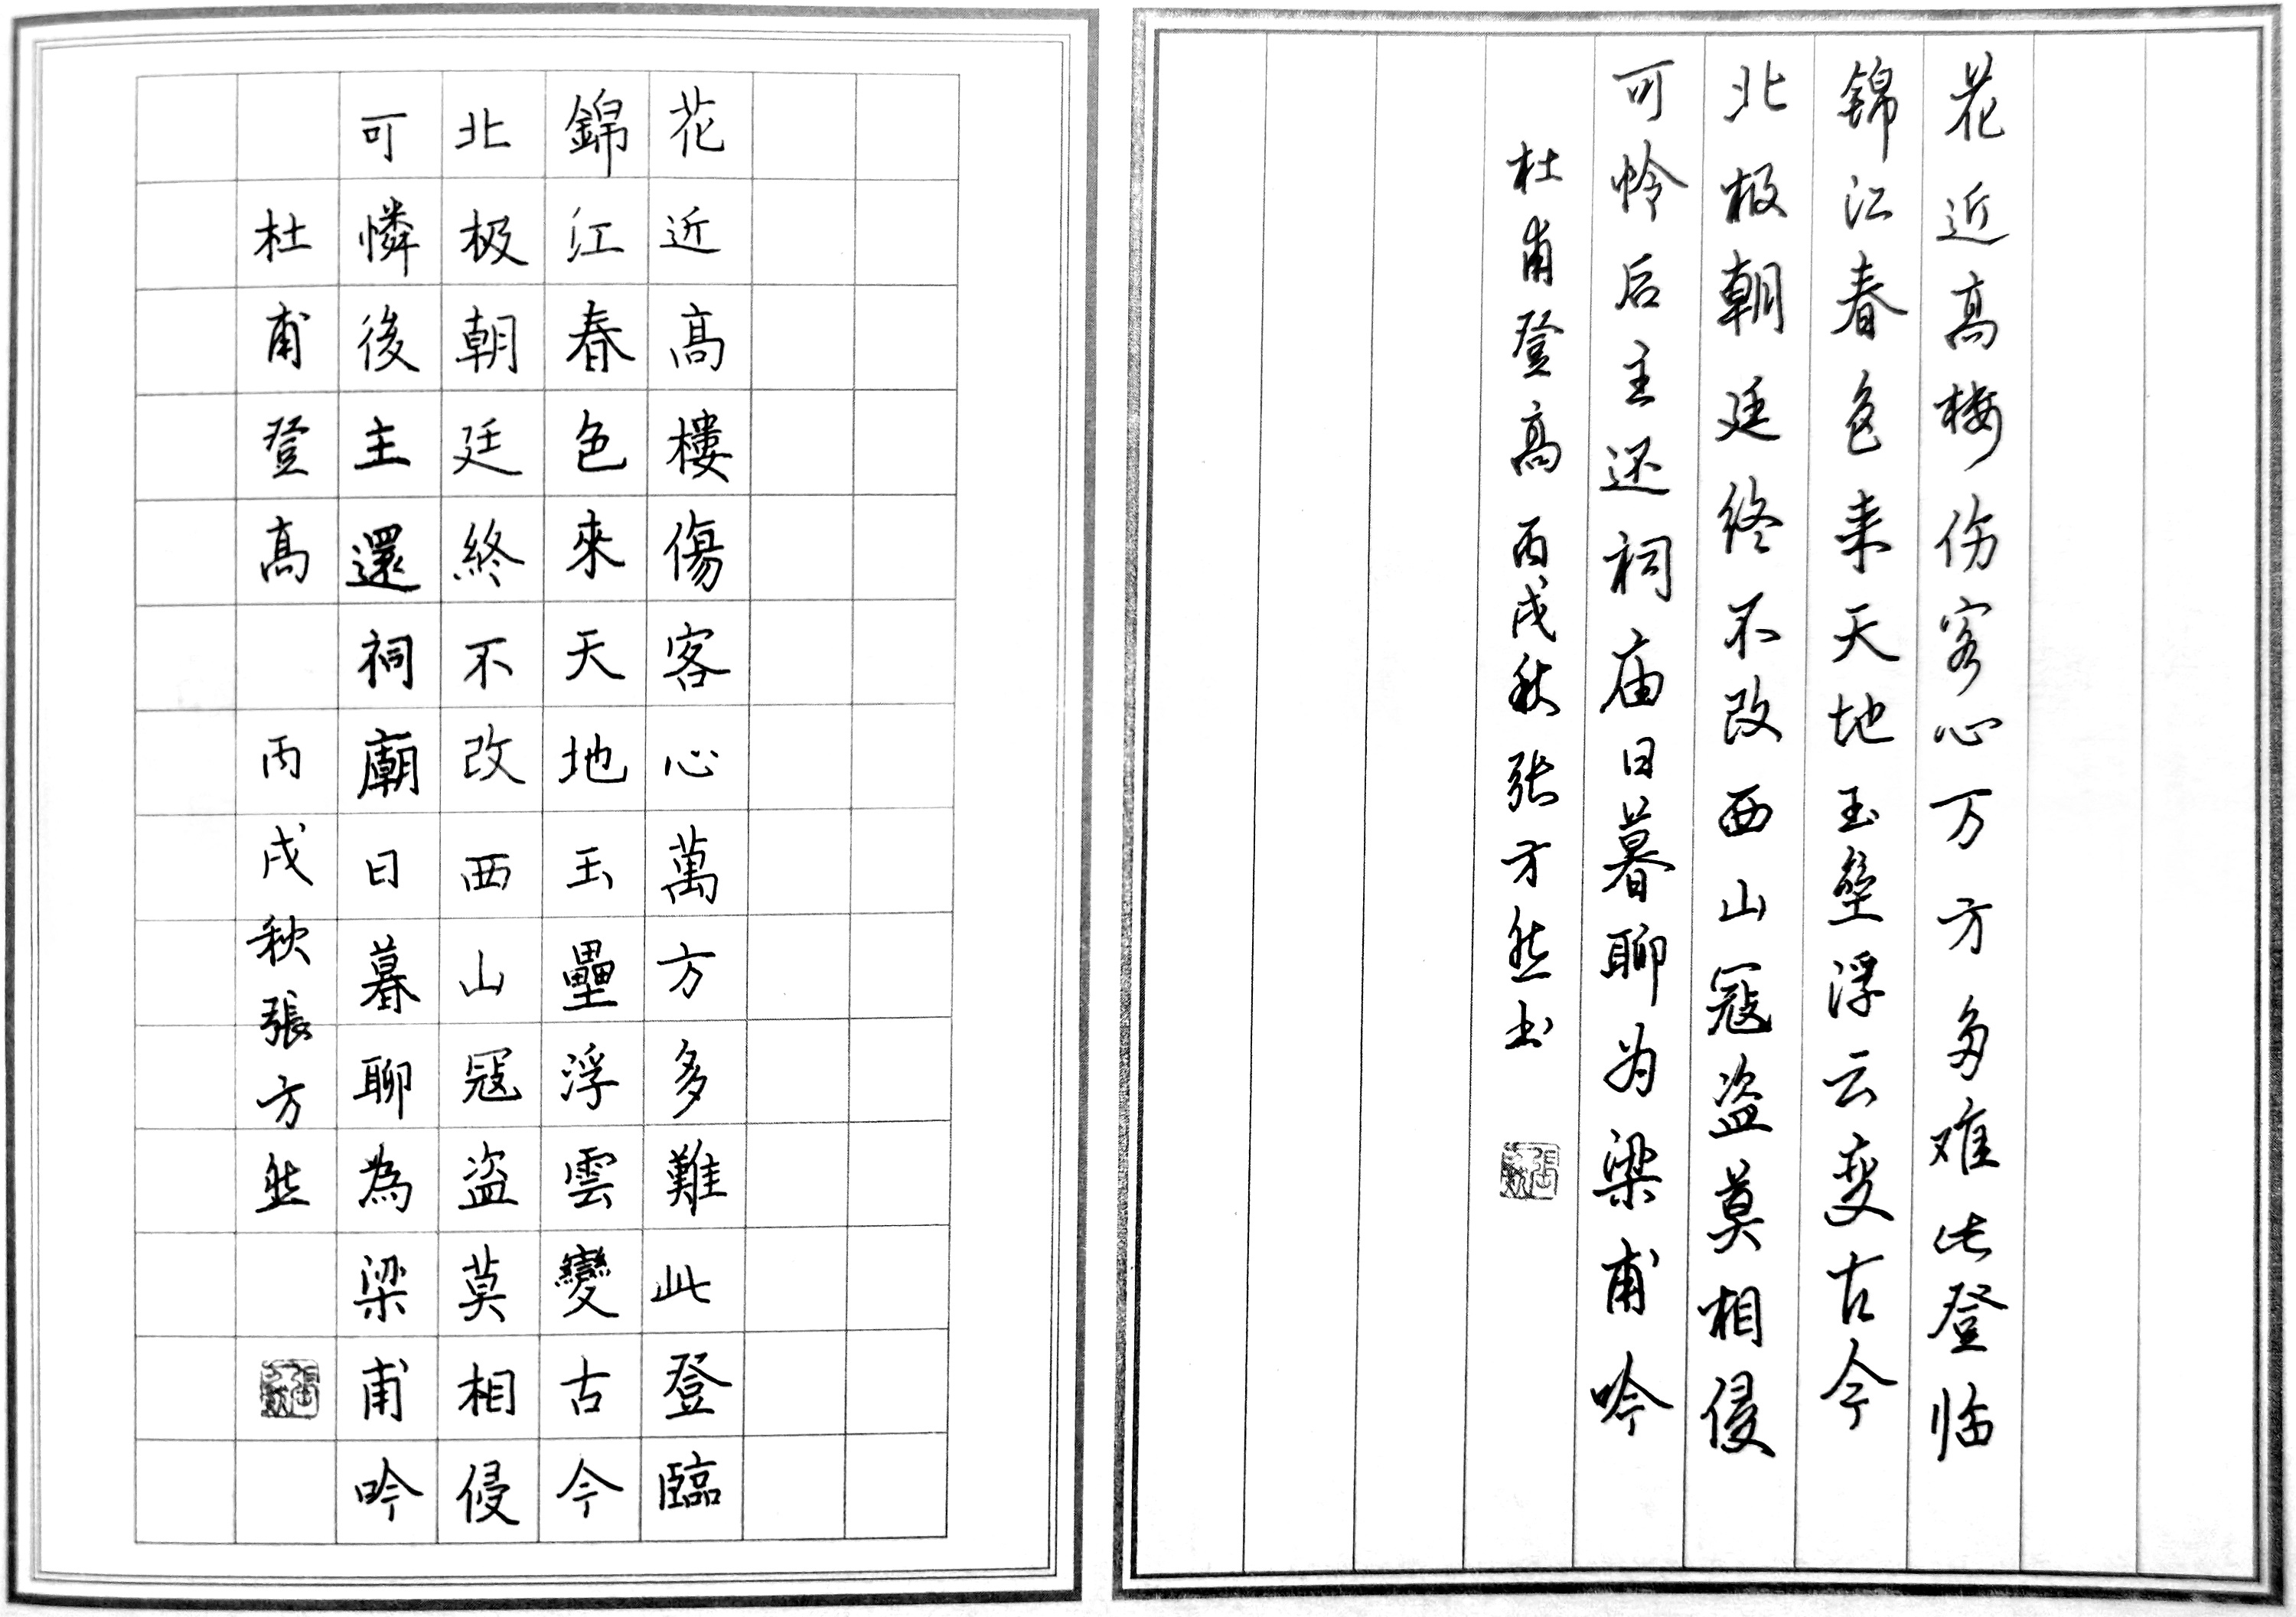 花近高樓傷客心萬方多難此登臨
錦江春色來天地玉壘浮雲變古今
北极朝廷終不改西山寇盗莫相侵
可憐後主還祠廟日暮聊為梁甫吟
杜甫登高 丙戌秋張方然
花近高楼伤客心万方多难此登临
錦江春色来天地玉垒浮云变古今
北极朝廷终不改西山寇盗莫相侵
可怜后主还祠庙日暮聊为梁甫吟
杜甫登高 丙戌秋张方然书